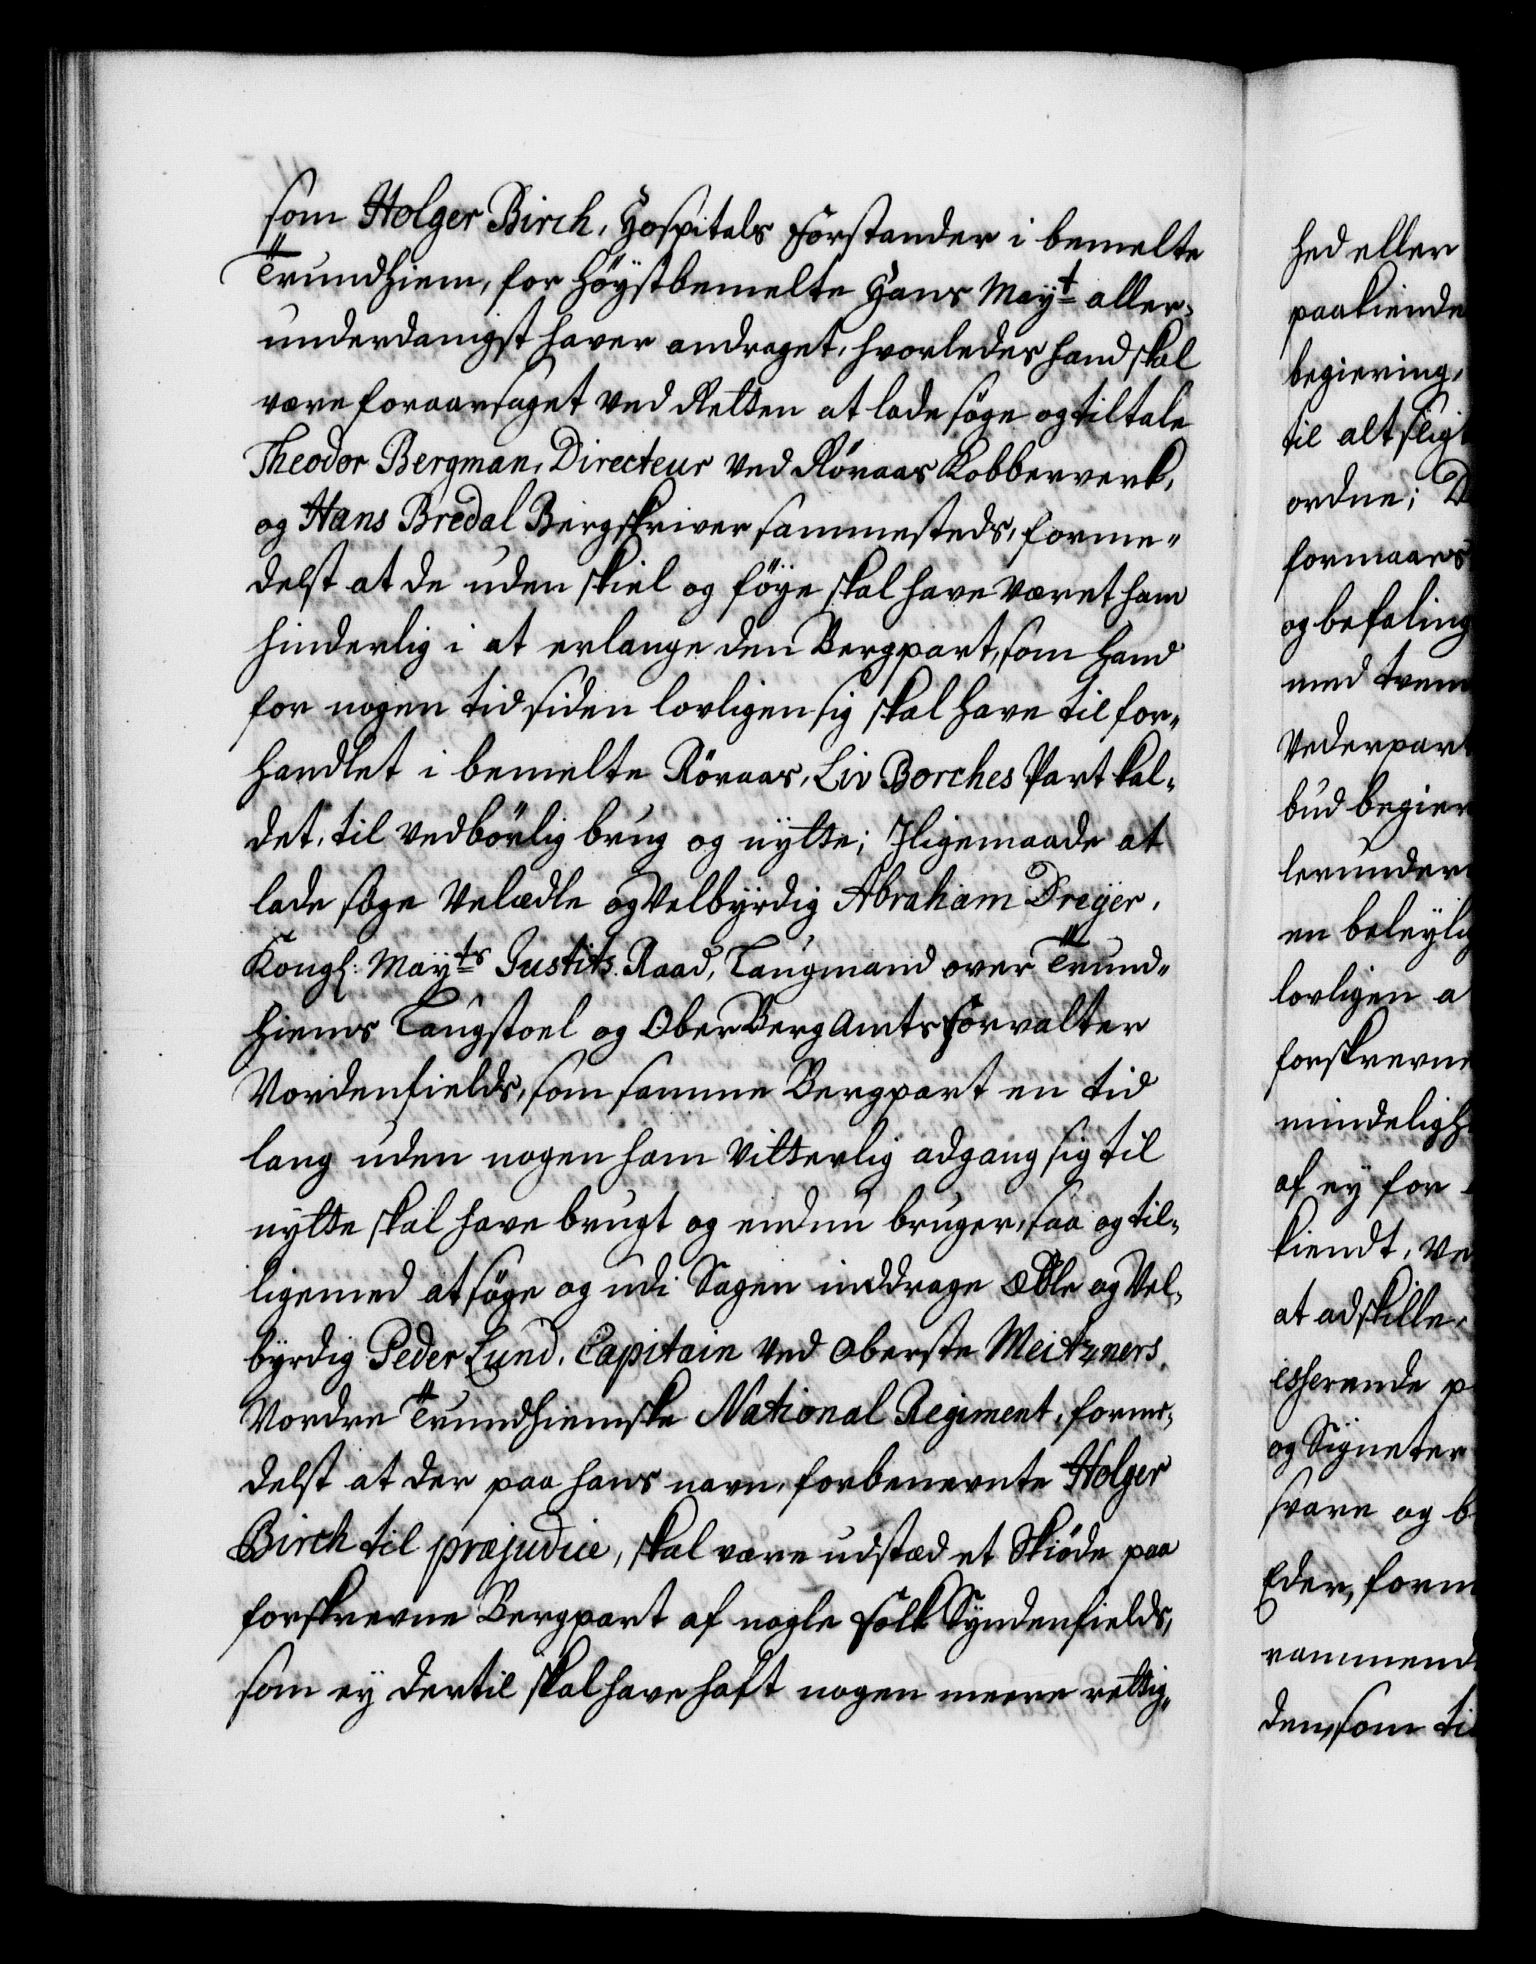 som Holger Birch, Hospitals Forstander i bemelte
Trundhiem, for høystbemelte Hans Mayt aller-
underdanigst haver andraget, hvorledes hand skal
være foraarsaget ved Retten at lade søge og tiltale
Theodor Bergman, Directeur ved Røraas Kobberverk,
og Hans Bredal Bergskriver sammesteds, forme-
delst at de uden skiel og føye skal have været ham
hinderlig i at erlange den Bergpart, som hand
for nogen tid siden lovligen sig skal have til for-
handlet i bemelte Røraas, Liv Borches Part kal-
det, til vedbørlig brug og nytte; Iligemaade at
lade søge Velædle og Velbyrdig Abraham Dreyer,
Kongl: Mayts Justits Raad, Laugmand over Trund-
hiems Laugstoel og Ober Berg Amts Forvalter
Nordenfields, som samme Bergpart en tid
lang uden nogen ham vitterlig adgang sig til
nytte skal have brugt og endnu bruger, saa og til-
ligemed at søge og udi Sagen inddrage Ædle og Vel-
byrdig Peder Lund, Capitain ved Oberste Meitzners
Nordre Trundhiemske National Regiment, forme-
delst at der paa hans navn, forbenevnte Holger
Birch til præjudice, skal være udstæd et Skiøde paa
forskrevne Bergpart af nogle Folk Syndenfields,
som ey dertil skal have haft nogen meere rettig-
hed eller
paakiende
begiering,
til alt slig
ordne; D
formaars
og befaling
med tvem
Vederpart
bud begier
lerunder
en beleylig
lovligen a
forskrevne
mindeligh
af ey for
kiendt, ve
at adskille,
isserende p
og Signeter
svare og b
Eder, form
rammend
den, som ti